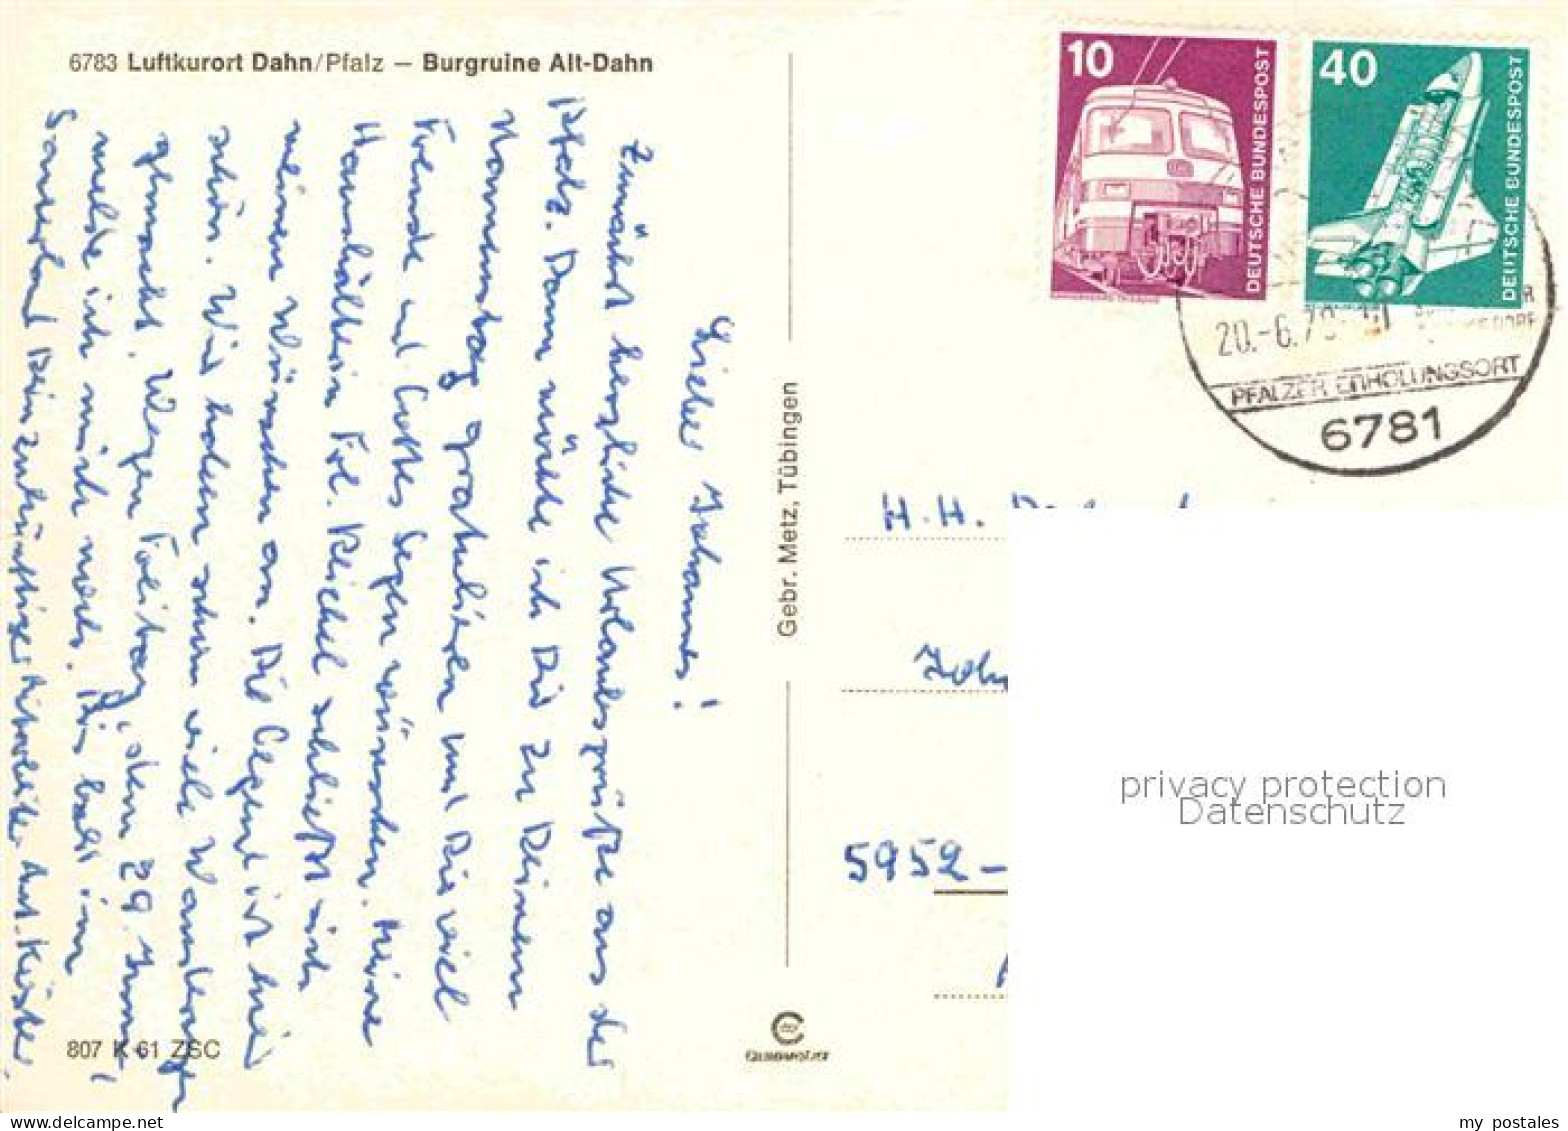 6783 Luftkurort Dahn/Pfalz – Burgruine Alt-Dahn
Lieber Johannes!
Zunächst herzliche Urlaubsgrüße aus der
Pfalz. Dann möchte ich Dir zu Deinem
Namenstag gratulieren und Dir viel
Freude und Gottes Segen wünschen. Meine
Haushälterin Frl. Reichel schließt sich
meinen Wünschen an. Die Gegend ist hier
schön. Wir haben schon viele Wanderungen
gemacht. Wegen Freitag, dem 29. Juni,
melde ich mich noch. Bis bald im
Sauerland Dein zukünftiger Mitarbeiter
807 K 61 ZSC
Gebr. Metz, Tübingen
10
DEUTSCHE BUNDESPOST
40
DEUTSCHE BUNDESPOST
20.-6.79
PFÄLZER ERHOLUNGSORT
6781
H. H.
5952 –
privacy protection
Datenschutz
my postales